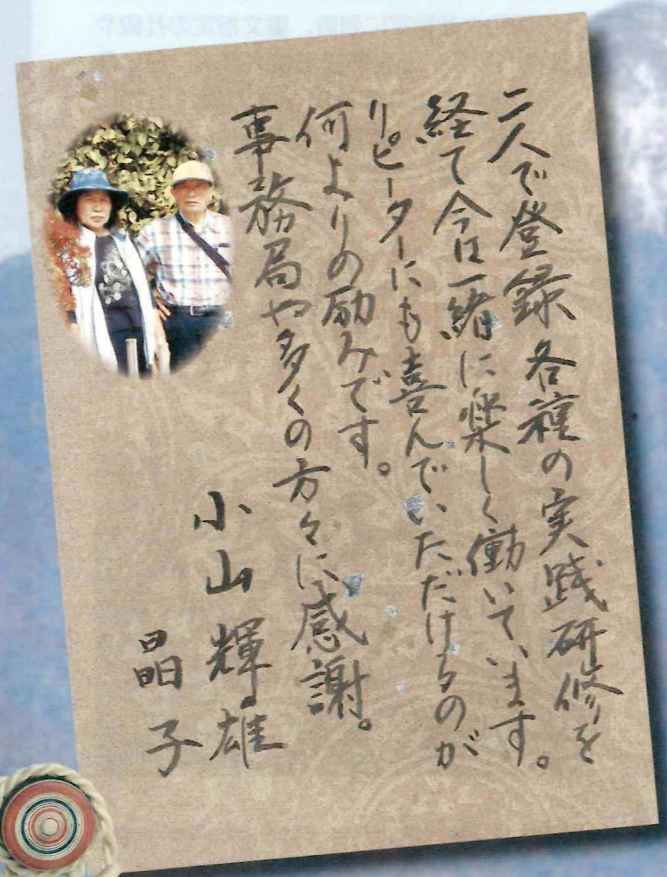 二人で登録各種の実践研修を
経て今は一緒に楽しく働いています。
リピーターにも喜んでいただけるのが
何よりの励みです。
事務局や多くの方々に感謝。
小山輝雄
晶子